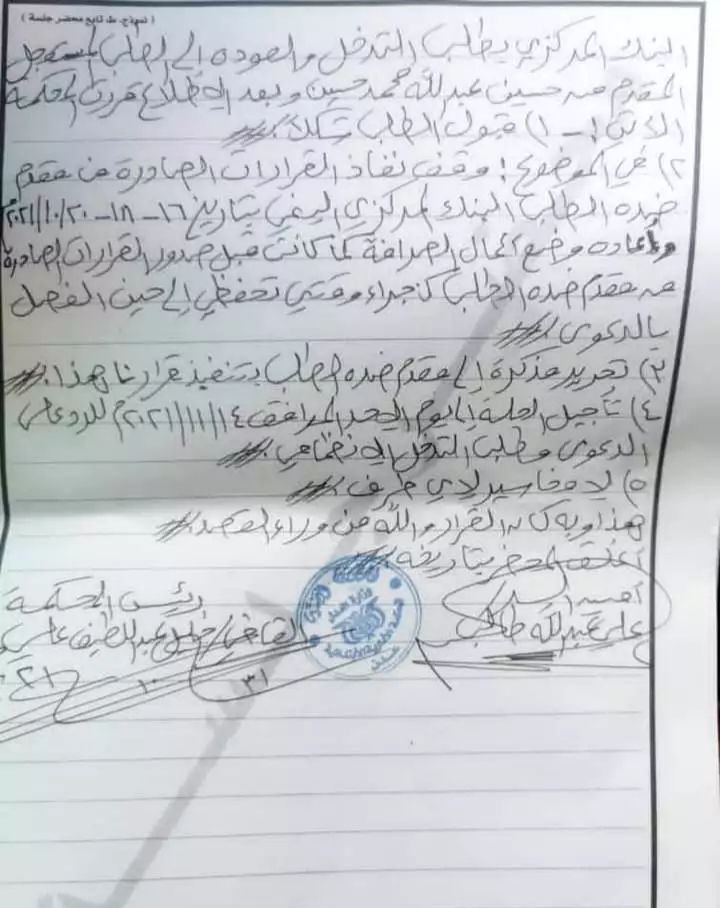 ( نموذج. ط. تابع محضر جلسة )
البنك المركزي بطلب التدخل والعوده الى الطلب المستعجل
المقدم من حسين عبدالله محمد حسين وبعد الاطلاع قررت المحكمة
الاتي :- ١) قبول الطلب شكلاً.
٢) في الموضوع : وقف نفاذ القرارات الصادرة من مقدم
ضده الطلب البنك المركزي اليمني بتاريخ ١٦-١٨-٢٠/١٠/٢٠٢١م
وإعاده وضع اعمال الصرافة كما كانت قبل صدور القرارات الصادرة
من مقدم ضده الطلب كإجراء وقتي تحفظي إلى حين الفصل
بالدعوى.
٣) تحرير مذكرة إلى مقدم ضده الطلب بتنفيذ قرارنا هذا.
٤) تأجيل الجلسة ليوم الاحد الموافق ١٤/١١/٢٠٢١م للرد على
الدعوى وطلب التدخل الانضمامي.
٥) لا مفاسير لاي طرف.
هذا وبه كان القرار والله من وراء القصد.
أغلق المحضر بتاريخه.
أمين السر
علي عبدالله طالب
رئيس المحكمة
القاضي/ عبداللطيف علي
٣١ ١٠ ٢٠٢١
وزارة العدل